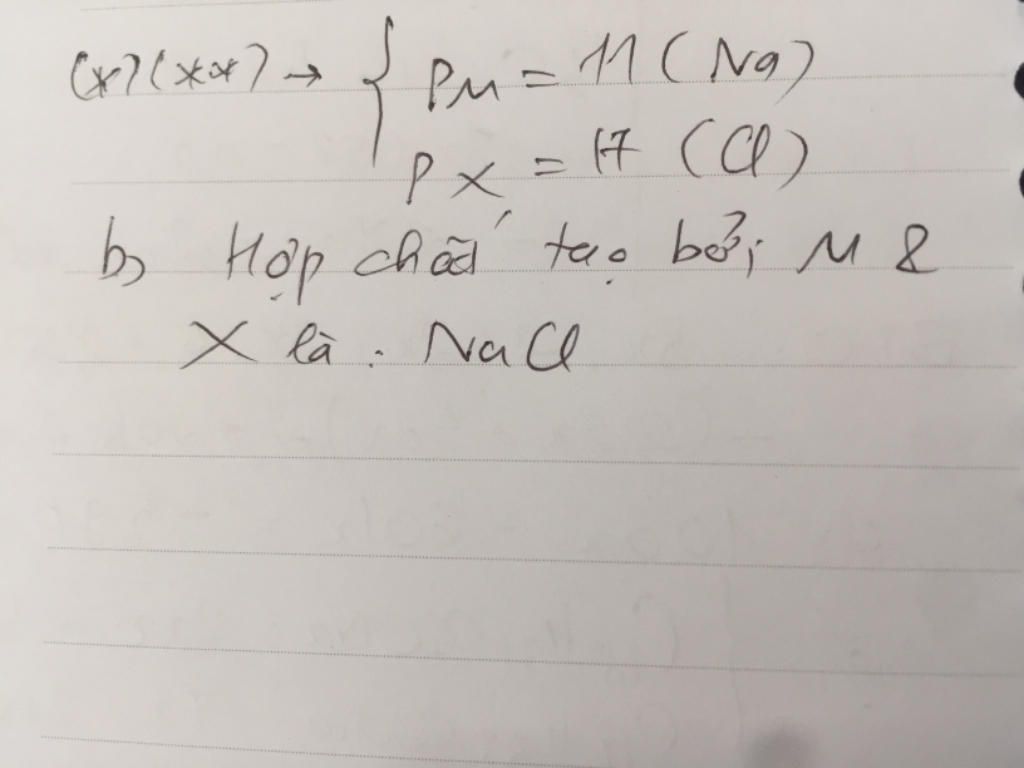 (*)(**) → { PM = 11 (Na)
PX = 17 (Cl)
b, Hợp chất tạo bởi M &
X là : NaCl